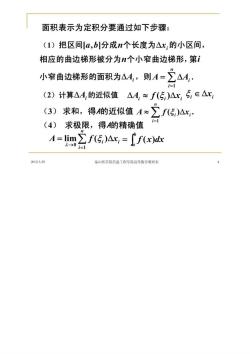 面积表示为定积分要通过如下步骤:
(1) 把区间[a,b]分成n个长度为Δxᵢ的小区间,
相应的曲边梯形被分为n个小窄曲边梯形, 第i
小窄曲边梯形的面积为ΔAᵢ, 则 A = ∑ᵢ₌₁ⁿ ΔAᵢ.
(2) 计算ΔAᵢ的近似值 ΔAᵢ ≈ f(ξᵢ)Δxᵢ ξᵢ ∈ Δxᵢ
(3) 求和, 得A的近似值 A ≈ ∑ᵢ₌₁ⁿ f(ξᵢ)Δxᵢ.
(4) 求极限, 得A的精确值
A = lim_{λ→0} ∑ᵢ₌₁ⁿ f(ξᵢ)Δxᵢ = ∫ₐᵇ f(x)dx
4